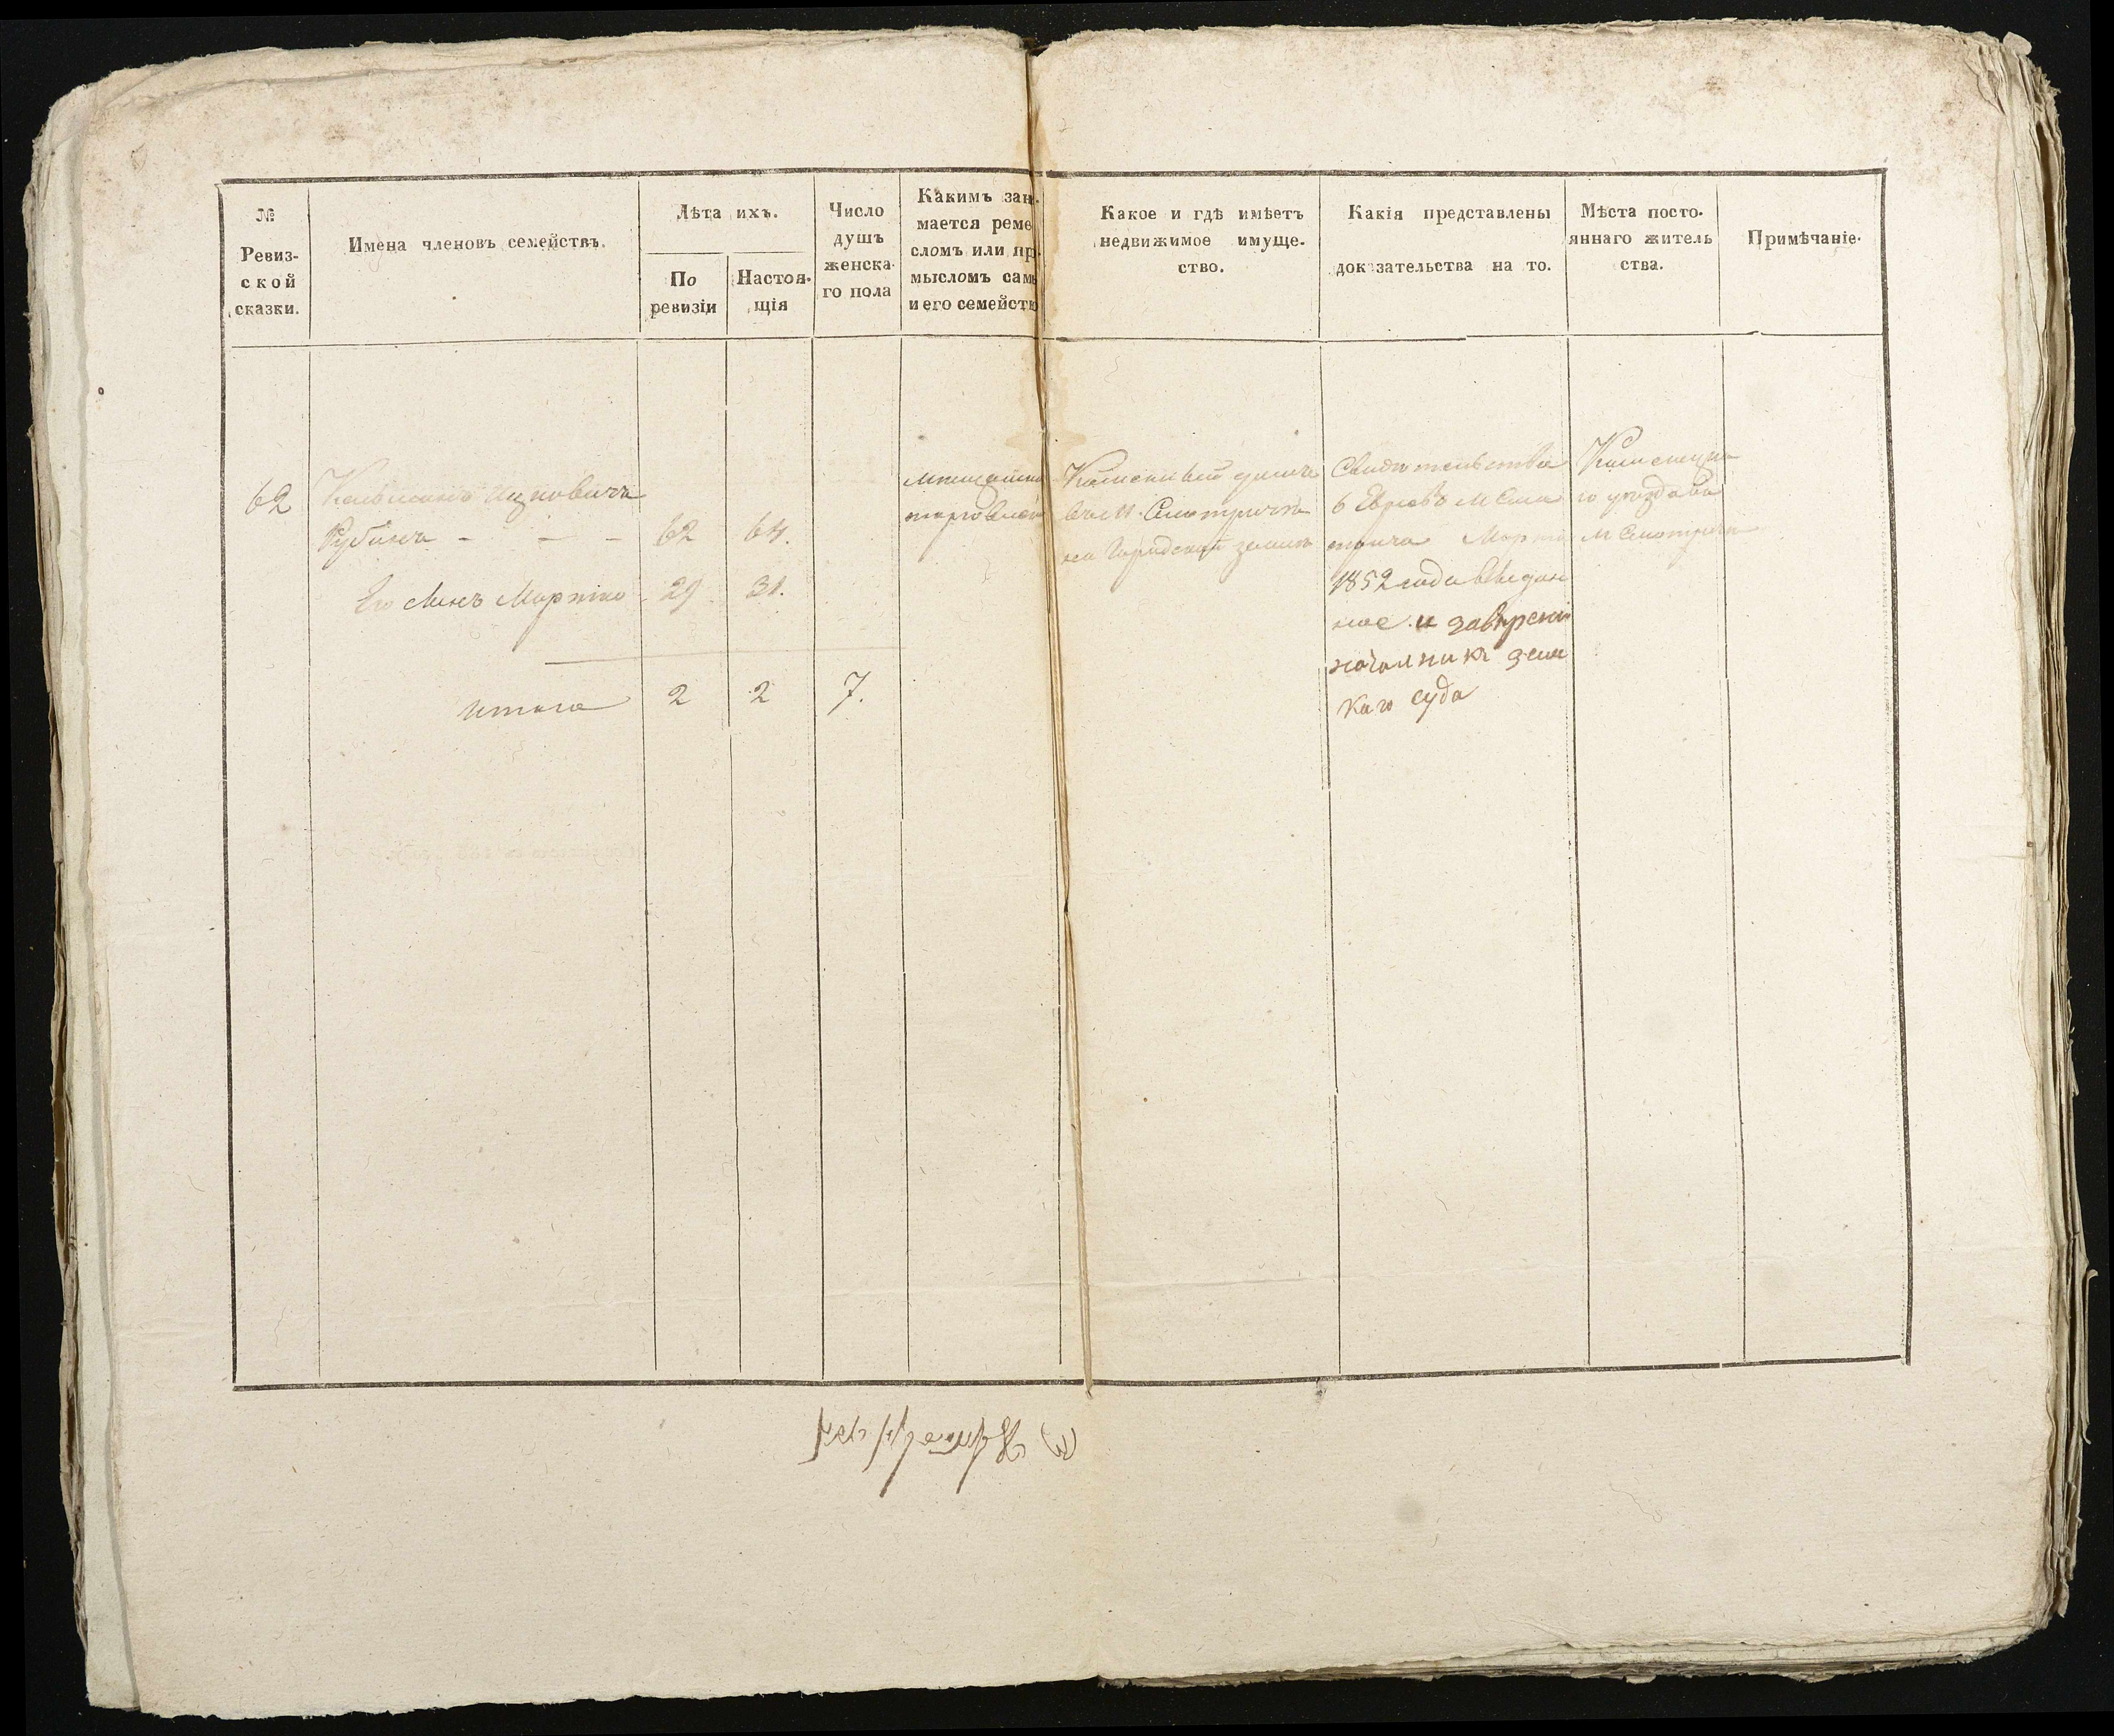 №
Ревиз-
ской
сказки.
Имена членовъ семействъ.
Лѣта ихъ.
По
ревизіи
Настоя-
щія
Число
душъ
женска-
го пола
Какимъ зани-
мается реме
сломъ или пр
мысломъ самъ
и его семейство
Какое и гдѣ имѣетъ
недвижимое имуще-
ство.
Какія представлены
доказательства на то.
Мѣста посто-
яннаго житель
ства.
Примѣчаніе.
62
Кельманъ Ицковичъ
Рубинъ - - - 62 64.
Его сынъ 29 31.
Итого 2 2 7.
торговлею
Каменный домъ
въ м. Смотричѣ
на Городской земли
Свидѣтельство
6 Евреевъ М Смо
трича Марта
1852 года выдан
ное и завѣрен
земс
каго суда
Каменецка
го уѣзда въ
М Смотричѣ